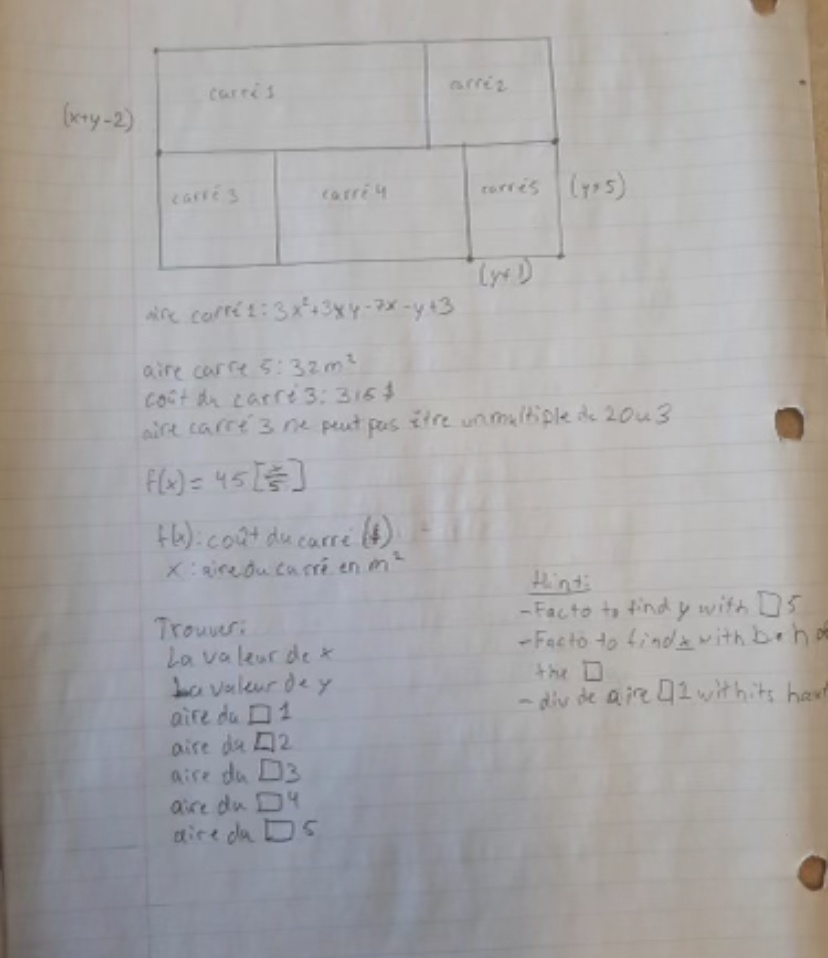 carré 1
arré 2
(x+y-2)
carré 3
carré 4
carré 5
(y+5)
(y+1)
aire carré 1: 3x²+3xy-7x-y+3
aire carre 5: 32m²
coût du carré 3: 315 $
aire carré 3 ne peut pas être un multiple de 2 ou 3
f(x) = 45 [x/5]
f(x): coût du carré ($)
x: aire du carré en m²
Hint:
-Facto to find y with □ 5
-Facto to find x with b • h
the □
- div de aire □1 with its haut
Trouver:
La valeur de x
La valeur de y
aire du □ 1
aire du □ 2
aire du □ 3
aire du □ 4
aire du □ 5